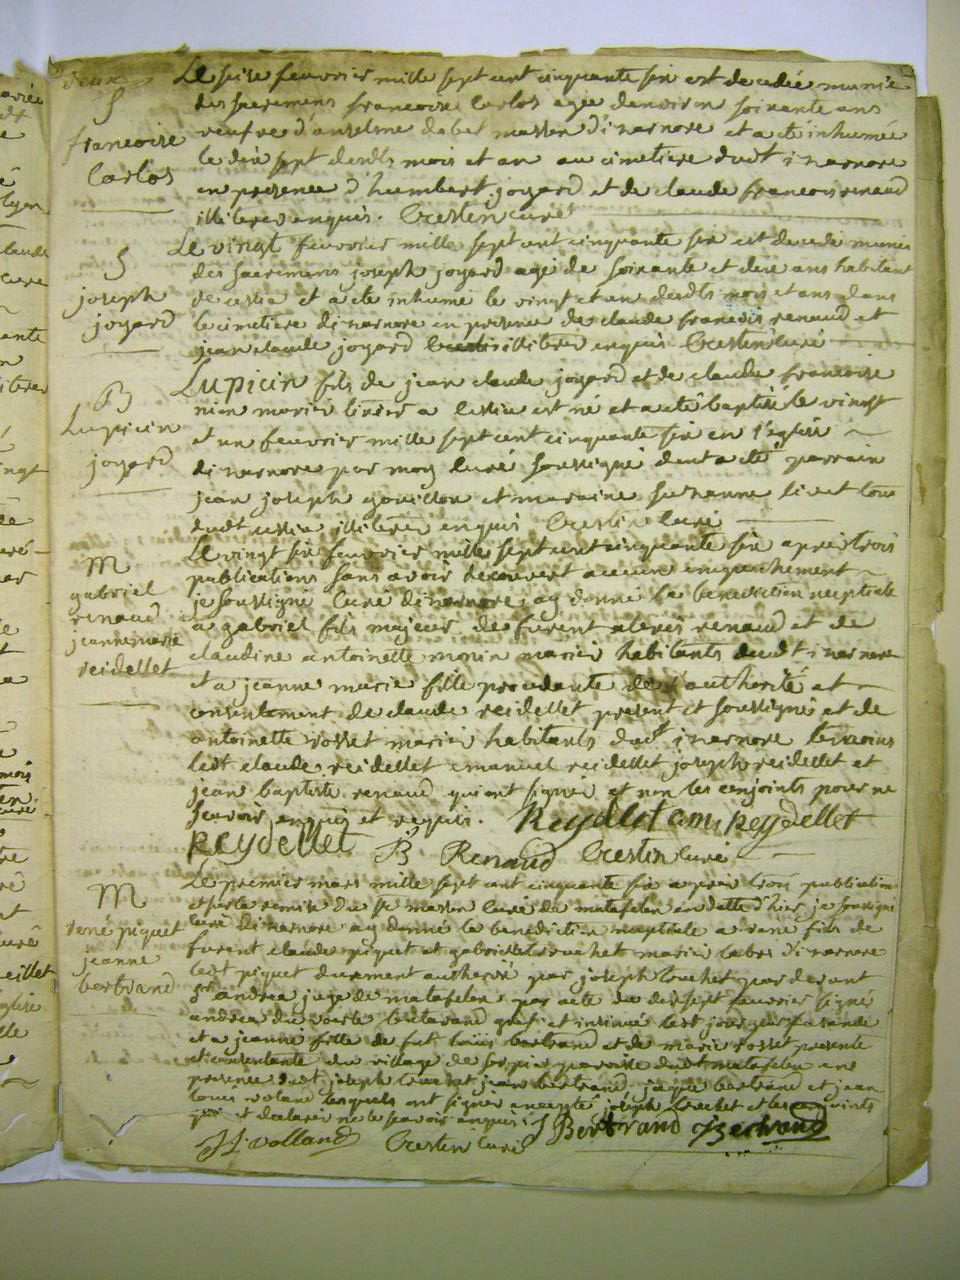 deux
S
francoise
Carlos
Le seise feuvrier mille sept cent cinquante six est decedée munie
des sacremens francoise Carlos agée denviron soixante ans
veufve d'anselme dabet masson d'izarnore et a eté inhumée
le dix sept desdts mois et an au cimetiere dudt izarnore
en presence d'humbert joyard et de claude francois renaud
illiteres enquis. Crestin curé
S
joseph
joyard
Le vingt feuvrier mille sept cent cinquante six est decedé munis
des sacremens joseph joyard agé de soixante et dixe ans habitant
de cessia et a eté inhumé le vingt et un desdts mois et ans dans
le cimetiere dizarnore en presence de claude francois renaud et
jean claude joyard illiteres enquis Crestin Curé
B
Lupicin
joyard
Lupicin fils de jean claude joyard et de claude francoise
mariés a cessia est né et a eté baptisé le vingt
et un feuvrier mille sept cent cinquante six en l'eglise
dizarnore par moy Curé soussigné dont a eté parrain
jean joseph gouillon et maraine suzanne livet tous
dudt cessia illiteres enquis Crestin Curé
M
gabriel
renaud
jeanne marie
reidellet
Le vingt six feuvrier mille sept cent cinquante six apres trois
publications sans avoir decouvert aucun empeschement
je soussigné Curé dizarnore ay donné la benediction nuptiale
a gabriel fils majeur de furent alexis renaud et de
claudine antoinette monin mariés habitants dudt izarnore
et a jeanne marie fille procedante de l'authorité et
consentement de claude reidellet present et soussigné et de
antoinette rosset mariés habitants dudt izarnore temoins
ledt claude reidellet emanuel reidellet joseph reidellet et
jean baptiste renaud qui ont signés et non les conjoints pour ne
scavoir enquis et requis. Reydellet cam Reydellet
REYdELLET JB Renaud Crestin Curé
M
rené piquet
jeanne
bertrand
Le premier mars mille sept cent cinquante six apres trois publication
et sur la remise du sr masson curé de matafelon en datte d'hier je soussigné
curé dizarnore ay donné la benediction nuptiale a rené fils de
furent claude piquet et gabrielle truchet mariés d'izarnore
ledt piquet duement authorisé par joseph truchet par devant
sr andrea juge de matafelon par acte du dixsept feuvrier signé
andrea
et a jeanne fille de fut louis bertrand et de marie rosset presente
et consentante du village de parroisse dudt matafelon en
presence dudt joseph truchet jean bertrand jaque bertrand et jean
louis volland lesquels ont signer excepté joseph truchet et les conjoints
qui ont declarés ne le scavoir enquis J Bertrand J Bertrand
JL volland Crestin Curé